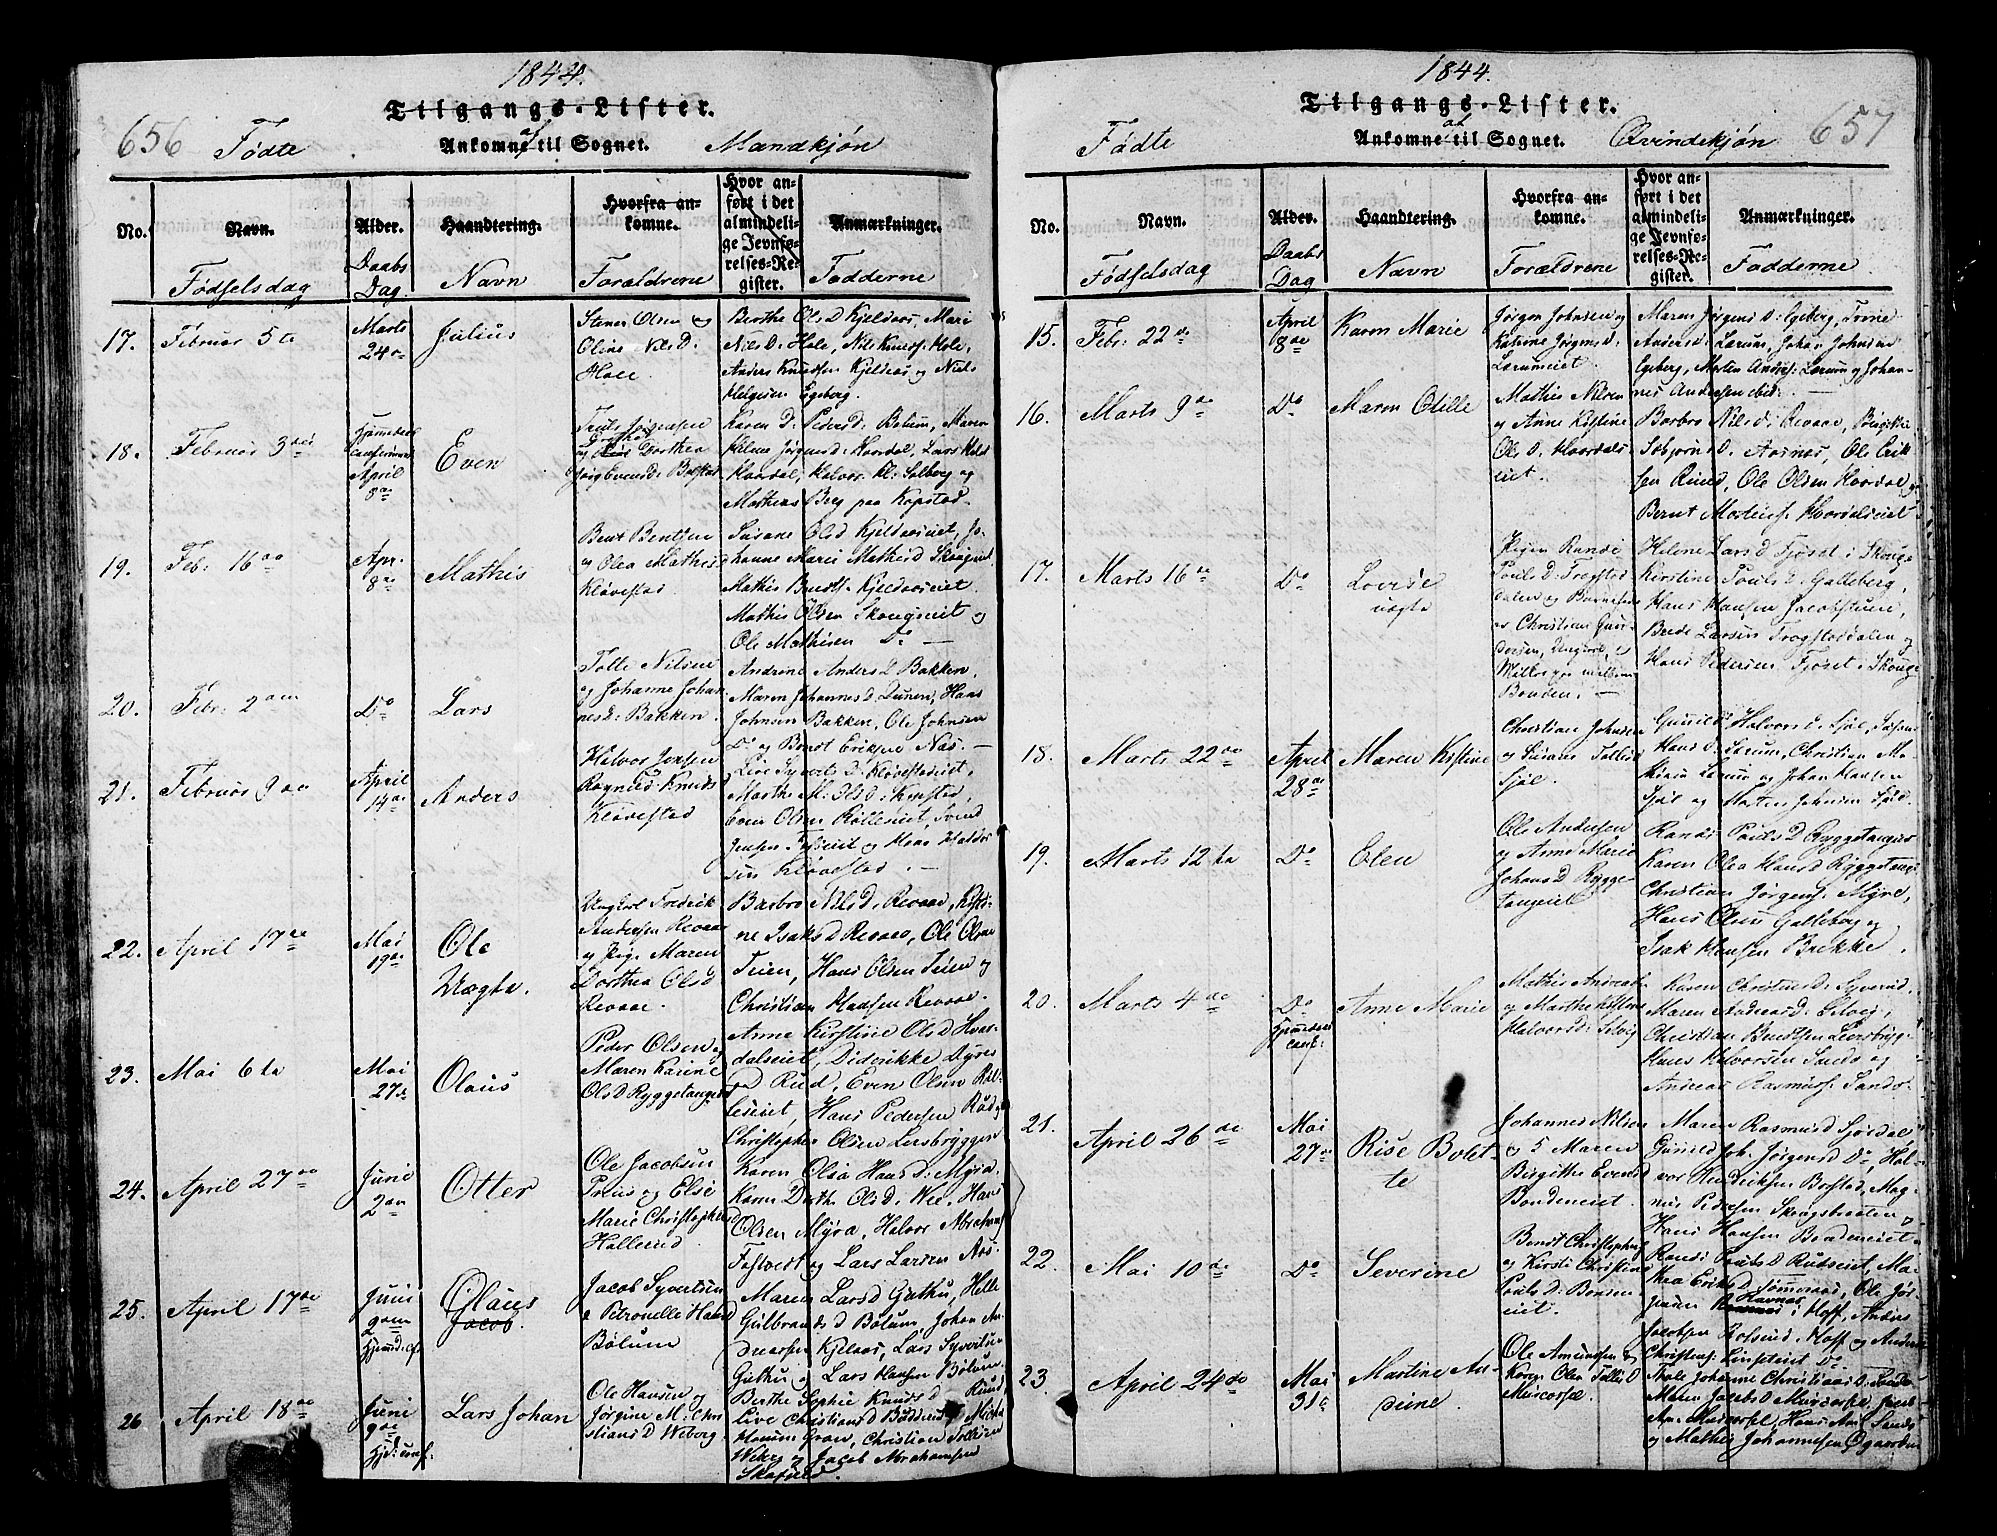 1844.
Tilgangs-Lister.
656 Fødte Ankomne af til Sognet. Mandkjøn
No. Navn. Alder. Haandtering. Hvorfra ankomne. Hvor anført i det almindelige Jevnførelses-Register. Anmærkninger.
Fødselsdag Daabs Dag. Navn Forældrene Fadderne
17. Februar 5te Marts 24de Julius
Stener Olsen og
Oline Nils D.
Hole.
Berthe Ols D Kjeldaas, Mari
Nils D. Hole, Nils Knuds. Hole,
Anders Knudsen Kjeldaas, og Niels
Helgesen Egeberg.
18. Februar 3die Hjemmedøbt April 8de Even
Truls Jørgensen
og Dorthea
Evens D. Bolstad
Karen D. Peders D. Bolum, Maren
Helene Jørgens D. Hvordal, Lars
Hvordal, Halvor Kl: Solberg og
Mathias Berg paa Kopstad.
19. Feb: 16de Apr. 8de Mathis
Bent Bentsen
og Olea Mathis D
Kløvestad
Susane Ols D Kjeldaaseiet, Jo-
hanne Marie Mathis D Skougeiet
Mathis Bendts. Kjeldaaseiet.
Mathis Olsen Skougeiet og
Ole Mathisen Do
20. Febr: 2den Do Lars
Tolle Nilsen
og Johanne Johan
nes D. Bakken.
Andrine Anders D Bakken,
Maren Johannes D. Dunen, Hans
Johnsen Bakken, Ole Johnsen
Do og Bendt Eriksen Nas.
21. Februar 9de April 14de Anders
Halvor Jensen
Ragnild Knuds
Kløvestad
Live Syverts D. Kløvestadeiet,
Marthe M. Ols D. Kopstad,
Even Olsen Rølleseiet, Svend
Jensen og Hans Halvor
sen Kløvestad.
22. April 17de Mai 19de Ole
Uægte.
Ungkarl Fredrik
Andersen Revaae
og Pige Maren
Dorthea Ols D
Revaae.
Barbro Nils D. Revaae, Kisti-
ne Isaks D Revaae, Ole Olsen
Teien, Hans Olsen Teien og
Christian Hansen Revaae.
23. Mai 6te Mai 27de Olaus
Peder Olsen og
Maren Karine
Ols D Ryggetangen
Anne Kirstine Ols D Hvar-
dalseiet, Diderikke Dyres
D Rud, Even Olsen Røl-
leseiet, Hans Pedersen Rud og
Christopher Olsen Lersbryggen
24. April 27de Juni 2den Otter
Ole Jacobsen
Prius og Else
Marie Christophers D
Hallerud
Karen Olea Hans D. Myra
Karen Dorthe Ols D. Wee, Hans
Olsen Myra, Halvor Abrahams.
Fostvedt og Lars Larsen Aas.
25. April 17de Juni 9de Hjemd. cf Olaus
Jacob.
Jacob Syvertsen
& Petronelle Hans D
Bølum
Maren Lars D Guthu, Helle
Gulbrands D Bølum, Johan An-
dreassen Kjelaas, Lars Syvertsen
Guthu og Lars Hansen Bølum
26 April 18de Juni 9de Hjd: conf. Lars Johan
Ole Hansen og
Jørgine M. Chri
stians D Weberg
Berthe Sophie Knuds D Rund
Live Christians D Bødderud,
Hansen Gran, Christian Tollesen
Weberg og Jacob Abrahamsen
Skafjeld.
1844.
Tilgangs-Lister.
Fødte Ankomne af til Sognet. Qvindekjøn 657
No. Navn. Alder. Haandtering. Hvorfra ankomne. Hvor anført i det almindelige Jevnførelses-Register. Anmærkninger.
Fødselsdag Daabs Dag Navn Forældrene Fadderne
15. Feb: 22de April 8de Karen Marie
Jørgen Johnsen og
Katrine Jørgens D.
Lærumeiet
Maren Jørgens D. Egeberg, Trine
Anders D. Lærum, Johan Johnsen
Egeberg, Morten Anders. Lærum og Johan-
nes Andersen ibid.
16. Marts 9de Do Maren Otille
Mathis Nilsen
og Anne Kistine
Ols D. Hvordals-
eiet.
Barbro Nils D. Revaae,
D. Aasnæs, Ole Erik-
sen Ruud, Ole Olsen Hvordal og
Bernt Mortens. Hvordalseiet
17. Marts 16de Do Lovise
uægte
Pigen Randi
Pouls D. Trogstad
dalen og Barnefar
er Christian Gun-
dersen, Ungkarl,
Bonden.
Helene Lars D Fjøset i Skouge
Kirstine Pouls D. Galleberg,
Hans Hansen Jacobstuen,
Bende Larsen Trogstaddalen og
Hans Pedersen Fjøset i Skouge
18. Marts 22de April 28de Maren Kistine
Christian Johnsen
og Susane Tolles D
Sjøl.
Gunild Halvors D. Sjøl,
Hans D. Lærum, Christian Ma-
thisen Lærum og Johan Hansen
Sjøl og Morten Johnsen Sjøl.
19. Marts 12te Do Elen
Ole Andersen
og Anne Marie
Johans D Rygge-
tangeiet
Randi Pouls D Ryggetangen
Karen Olea Hans D Ryggetangen
Christian Jørgens. Myre,
Hans Olsen Galleberg og
Isak Hansen Brekke.
20. Marts 4de Do Hjemmedøbt conf: Anne Marie
Mathis Andreas.
og Marthe Kistine
Halvors D. Selvig
Karen Christens D. Syverud,
Maren Andreas D. Selvig,
Christian Bendtsen Leersbrygg-
Hans Halvorsen Sande og
Andreas Rasmus. Sande.
21. April 26de Mai 27de Rise Bolet-
te
Johannes Nilsen
og Maren
Birgithe Evens D
Bondeneiet.
Maren Rasmus D Fjordal
Gunild Joh. Jørgens D Do, Hal-
vor Hendriksen Bolstad, Mag-
nus Pedersen Skougsbraaten,
Hans Hansen Bondeneiet
22. Mai 10de Do Severine
Bendt Christophers.
og Kirsti Christine
Pouls D. Bonden-
eiet.
Randi Pouls D Rudseiet, Ma-
rea Eriks D Sommeraas, Ole Jør-
gensen Ravnaas i Hoff, Anders
Jacobsen Rofsrud, Hoff og Anders
Christens. Linseteiet Do
23. April 24de Mai 31te Martine An-
drine.
Ole Amundsen &
Karen Oline Tolles D
Murcarsæl.
Thale Johanne Christians D. Sande
Maren Jacobs D Murcarsæl, Jacob
An. Murcarsæl, Hans And. Sande
og Mathis Johannesen Øgaarden